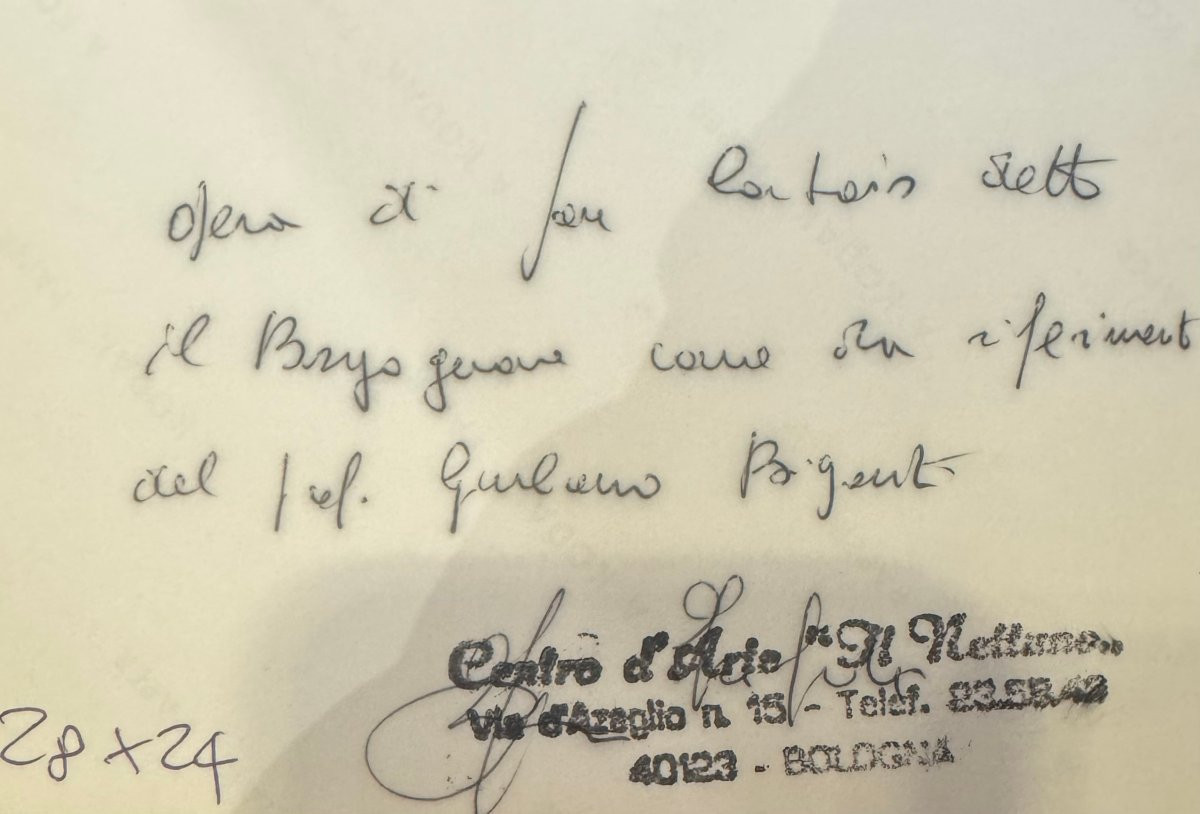 opera di Jan
Courtois detto
il Borgognone come da riferiment
del prof. Giuliano Bigent
Centro d'Arte "Il Nettuno"
Via d'Azeglio n. 15 - Telef. 23.55.
40123 - BOLOGNA
28 x 24